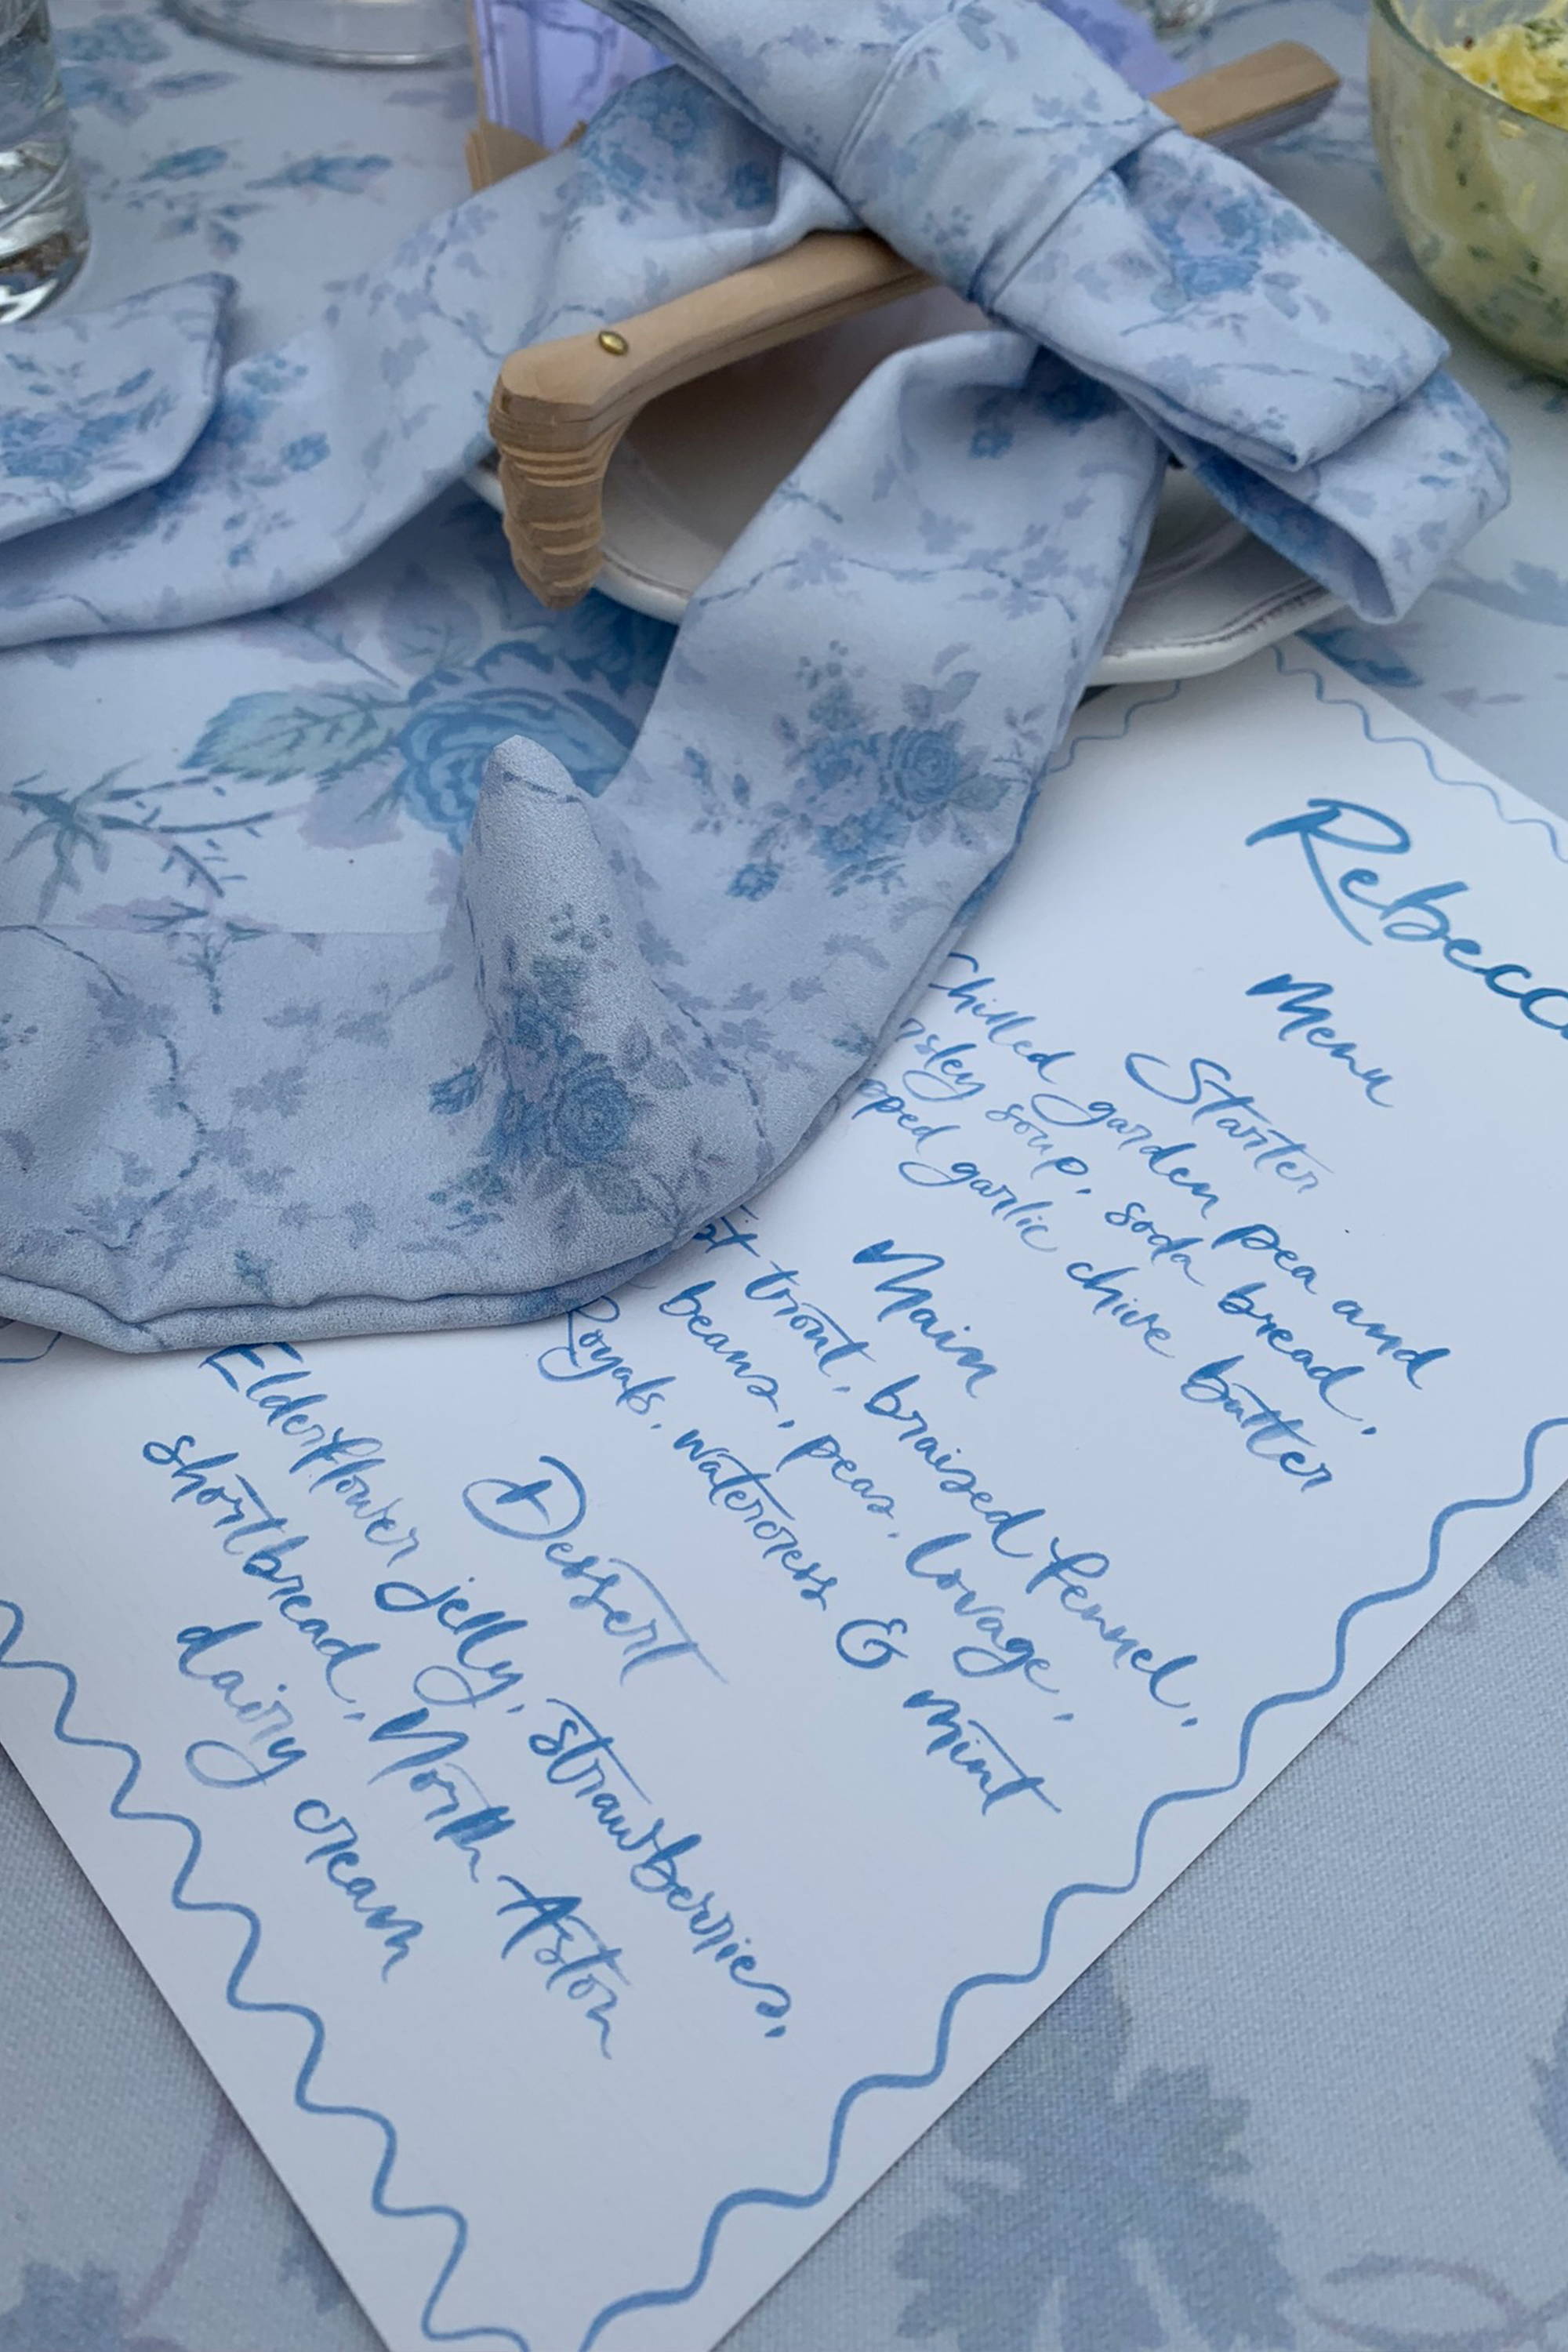 Rebecc
Menu
Starter
Chilled garden pea and
rsley soup, soda bread,
pped garlic chive butter
Main
trout, braised fennel,
beans, peas, lovage,
Royals, watercress & mint
Dessert
Elderflower jelly, strawberries,
shortbread, North Aston
dairy cream